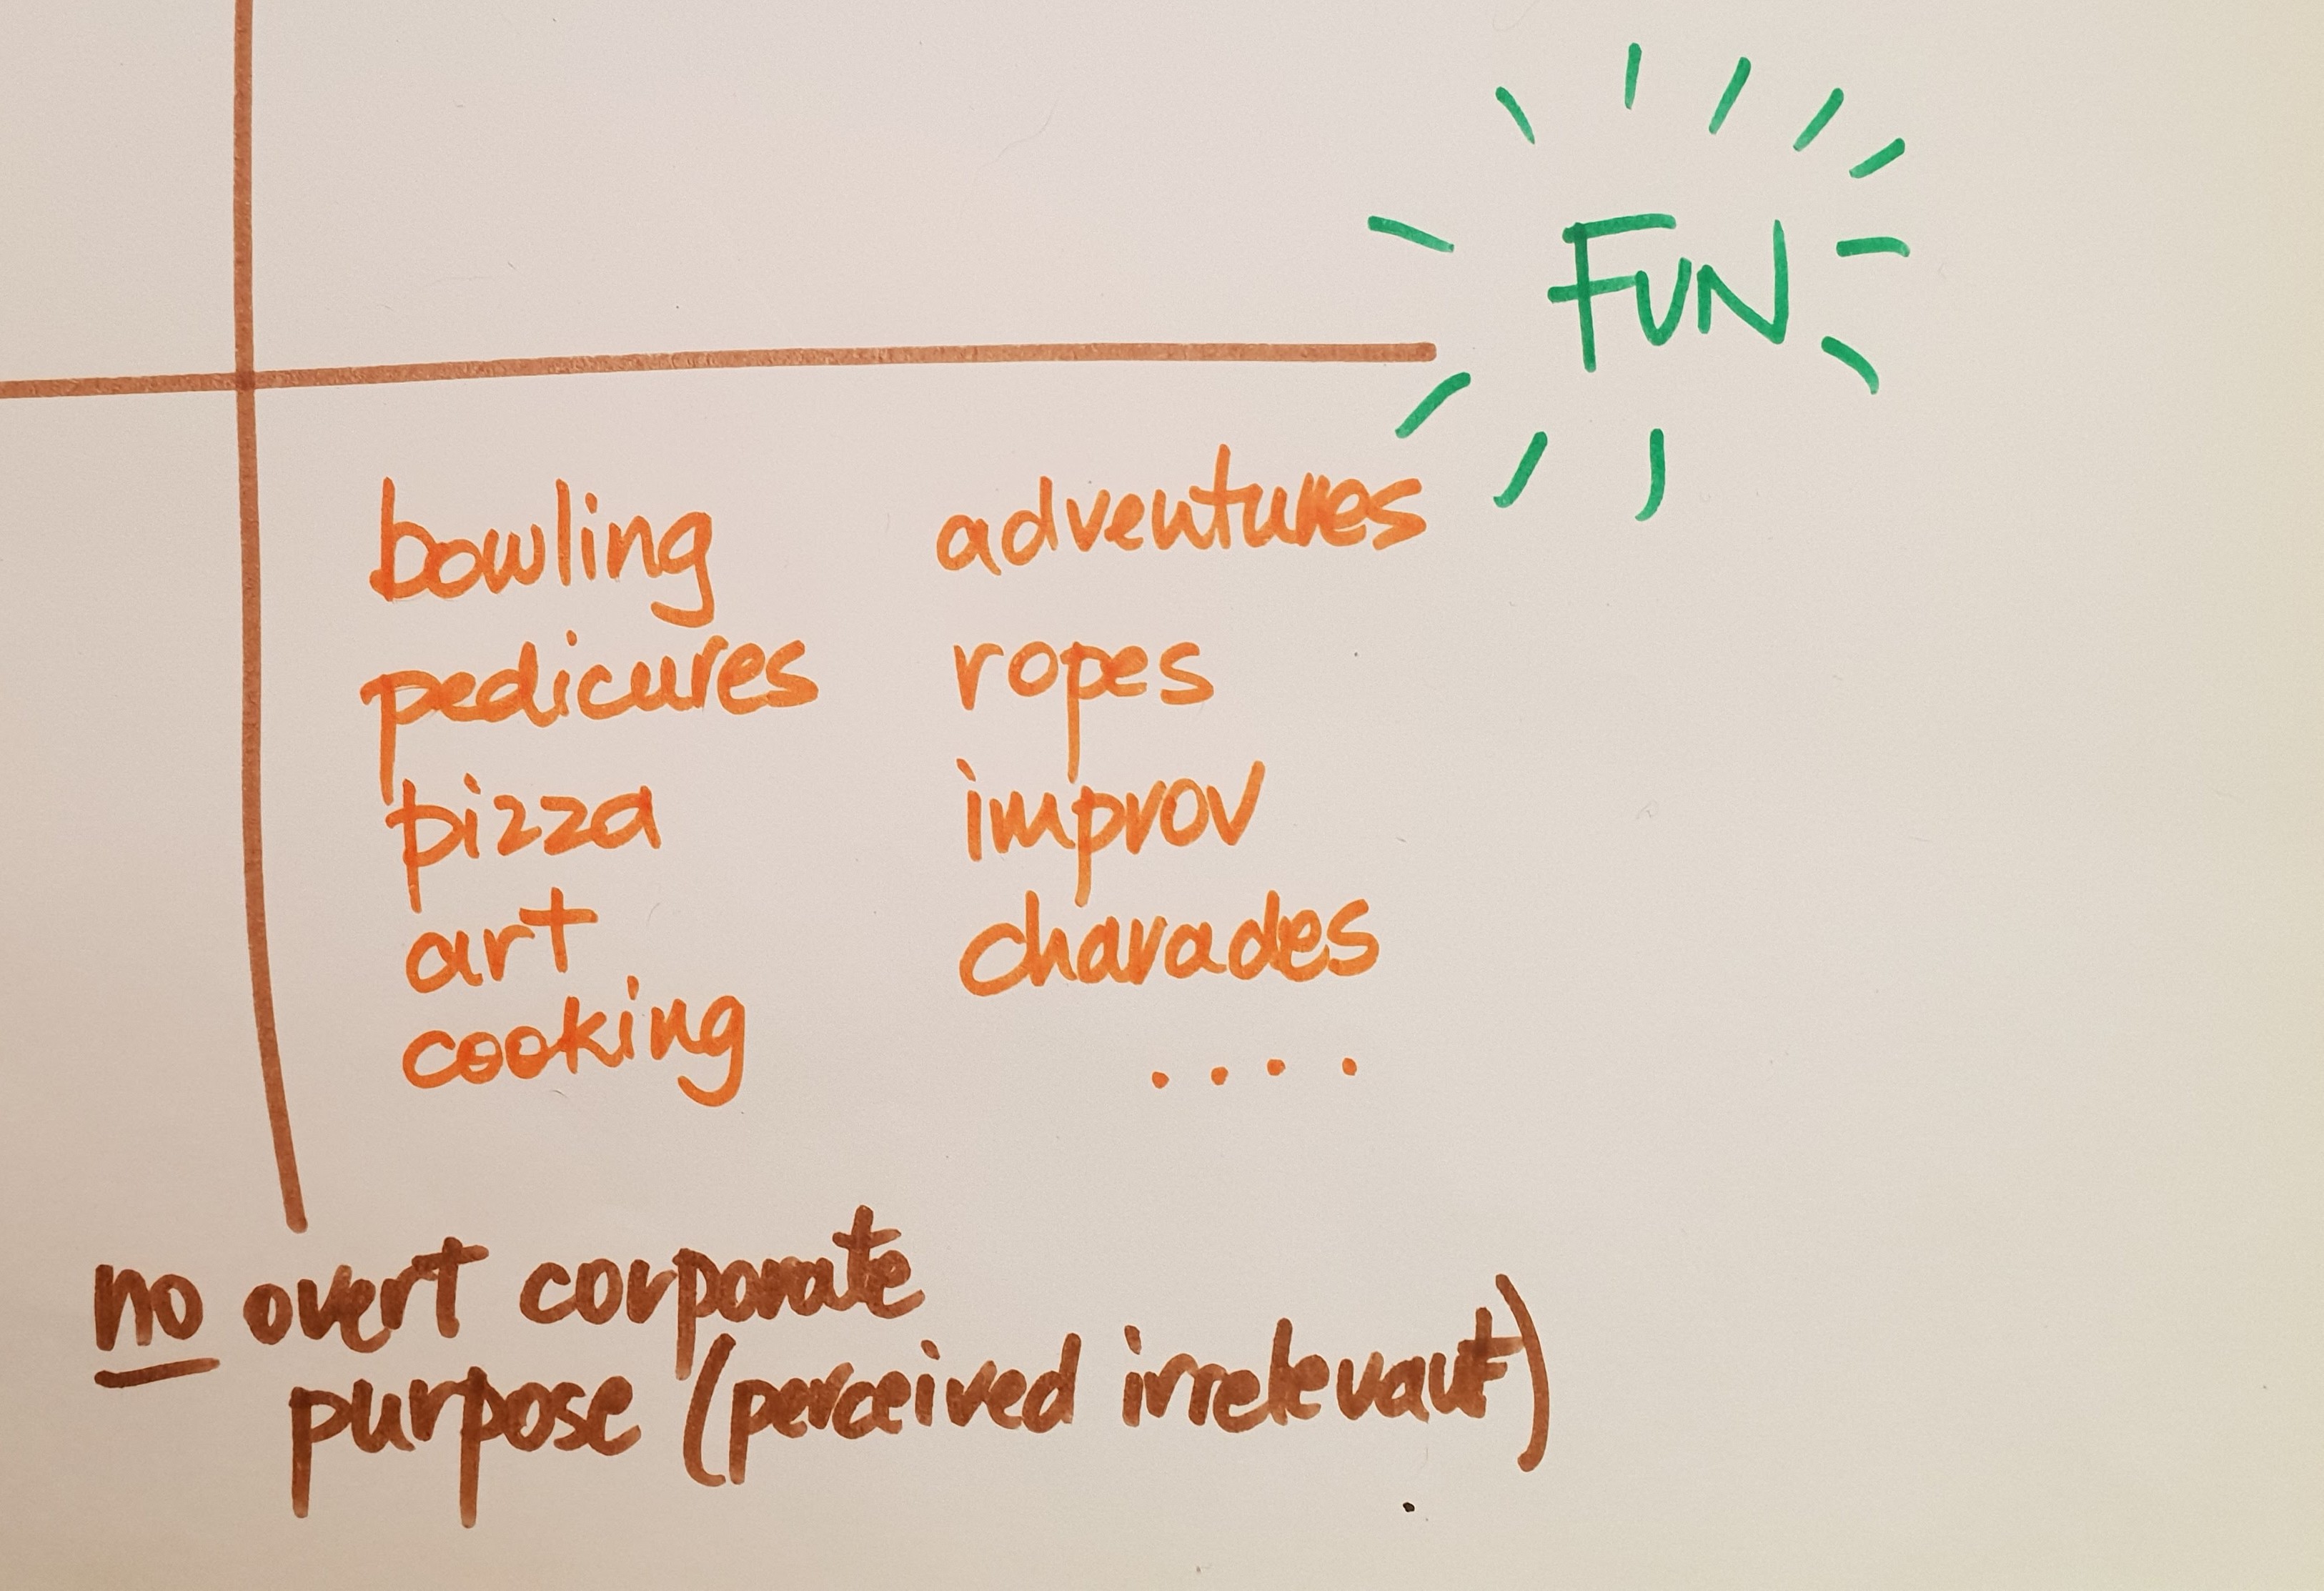 FUN
bowling
pedicures
pizza
art
cooking
adventures
ropes
improv
charades
....
no overt corporate
purpose (perceived irrelevant)